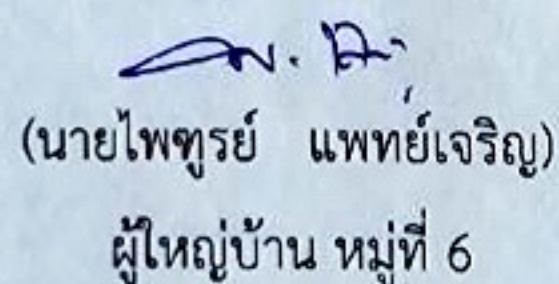 (นายไพฑูรย์ แพทย์เจริญ)
ผู้ใหญ่บ้าน หมู่ที่ 6